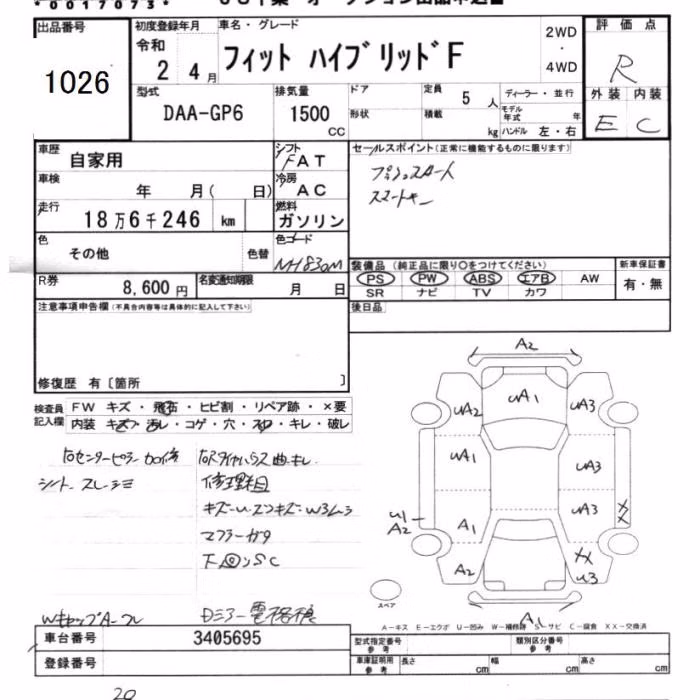 *0017073*
出品番号
1026
初度登録年月
令和
2 4月
車名・グレード
フィット ハイブリッドF
2WD
・
4WD
評価点
R
型式
DAA-GP6
排気量
1500
CC
ドア
形状
定員
5 人
積載
kg
ディーラー・並行
モデル年式 年
ハンドル 左・右
外装 内装
E C
車歴
自家用
シフト
FAT
車検
年 月( 日)
冷房
AC
走行
18万6千246 km
燃料
ガソリン
色
その他
色替
色コード
NH830M
セールスポイント(正常に機能するものに限ります)
プッシュスタート
スマートキー
装備品(純正品に限り〇をつけてください)
PS PW ABS エアB AW
SR ナビ TV カワ
新車保証書
有・無
R券
8,600円
名変通知期限
月 日
後日品
注意事項申告欄(不具合内容等は具体的に記入して下さい)
修復歴 有〔箇所 〕
検査員
記入欄
FW キズ・飛石・ヒビ割・リペア跡・×要
内装 キズ・汚レ・コゲ・穴・スレ・キレ・破レ
シートスレ
修理跡
キズ
マフラー
下回りSC
WキャップA
Dミラー電格
A2
UA2
UA1
UA3
UA1
UA3
U1
A2
A1
UA3
XX
A2
XX
U3
A1
スペア
A-キス E-エクボ U-凹み W-補修跡 S-サビ C-腐食 XX-交換済
車台番号
3405695
登録番号
型式指定番号
参考
類別区分番号
参考
車庫証明用
参考
長さ cm
幅 cm
高さ cm
20